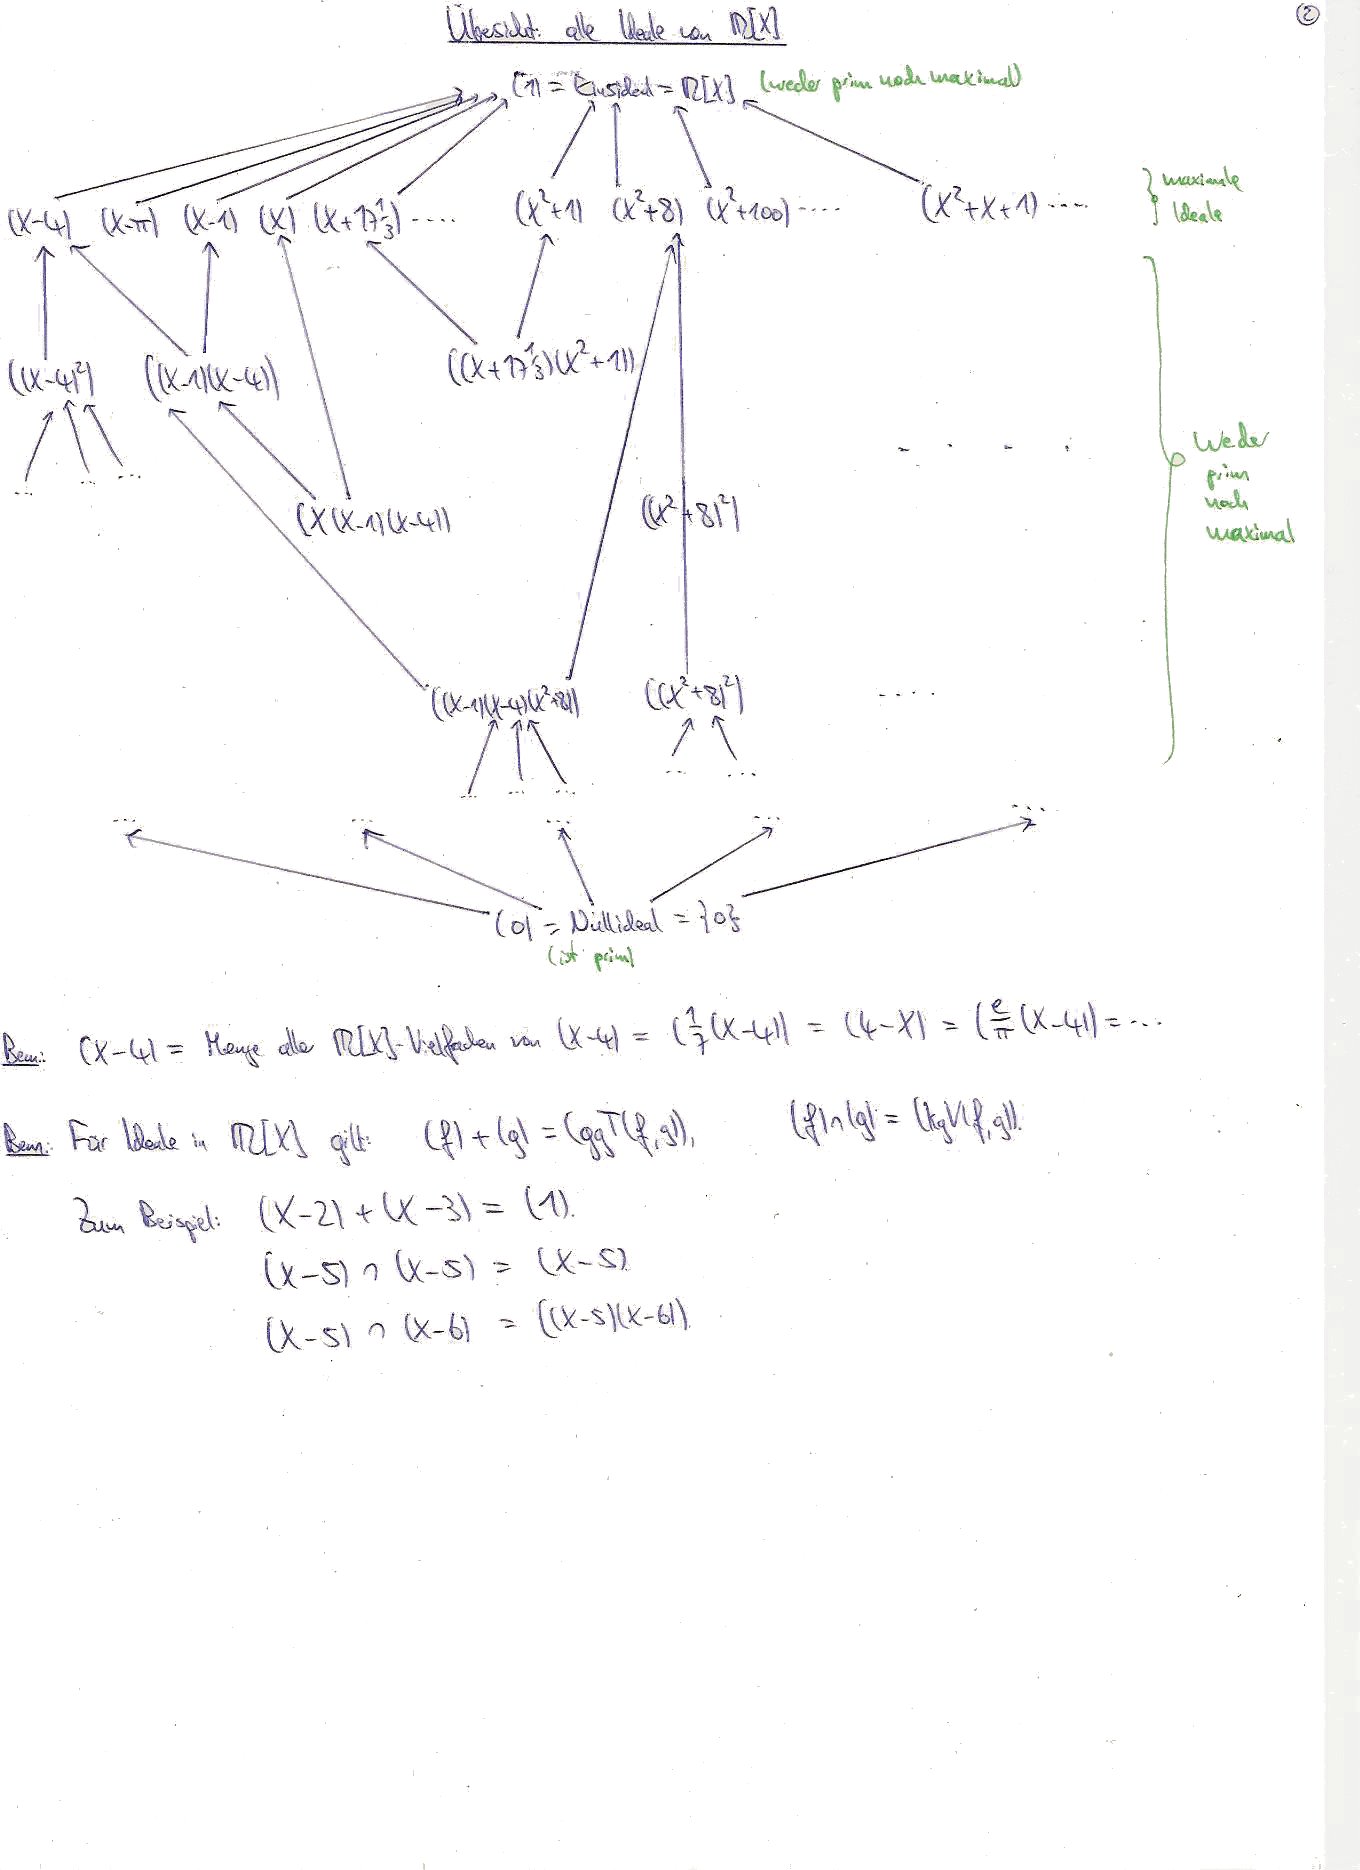 ②
Übersicht: alle Ideale von ℝ[X]
(1) = Einsideal = ℝ[X] (weder prim noch maximal)
(X-4) (X-π) (X-1) (X) (X+17⅓) ···· (X²+1) (X²+8) (X²+100) ···· (X²+X+1) ···· maximale Ideale
((X-4)²) ((X-1)(X-4)) ((X+17⅓)(X²+1))
... ... ... · · · · Weder prim noch maximal
(X(X-1)(X-4)) ((X²+8)²)
((X-1)(X-4)(X²+8)) ((X²+8)²) ····
... ... ... ... ...
... ... ... ... ....
(0) = Nullideal = {0}
(ist prim)
Bem.: (X-4) = Menge aller ℝ[X]-Vielfachen von (X-4) = (1/7(X-4)) = (4-X) = (e/π(X-4)) = ...
Bem.: Für Ideale in ℝ[X] gilt: (f)+(g) = (ggT(f,g)), (f)∩(g) = (kgV(f,g)).
Zum Beispiel: (X-2)+(X-3) = (1).
(X-5) ∩ (X-5) = (X-5)
(X-5) ∩ (X-6) = ((X-5)(X-6)).